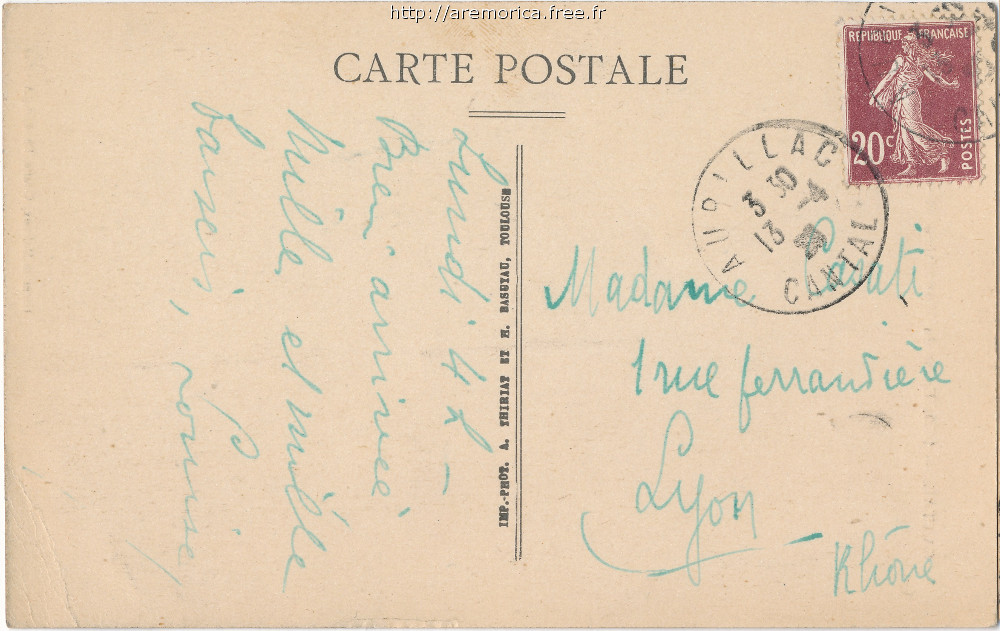 http://aremorica.free.fr
CARTE POSTALE
REPUBLIQUE FRANÇAISE
20c
POSTES
AURILLAC
3 30
13
CANTAL
Lundi 4 h –
Bien arrivée
Mille et mille
baisers, Louise,
IMP.-PHOT. A. THIRIAT ET H. BASUYAU, TOULOUSE
Madame
1 rue ferrandière
Lyon –
Rhône